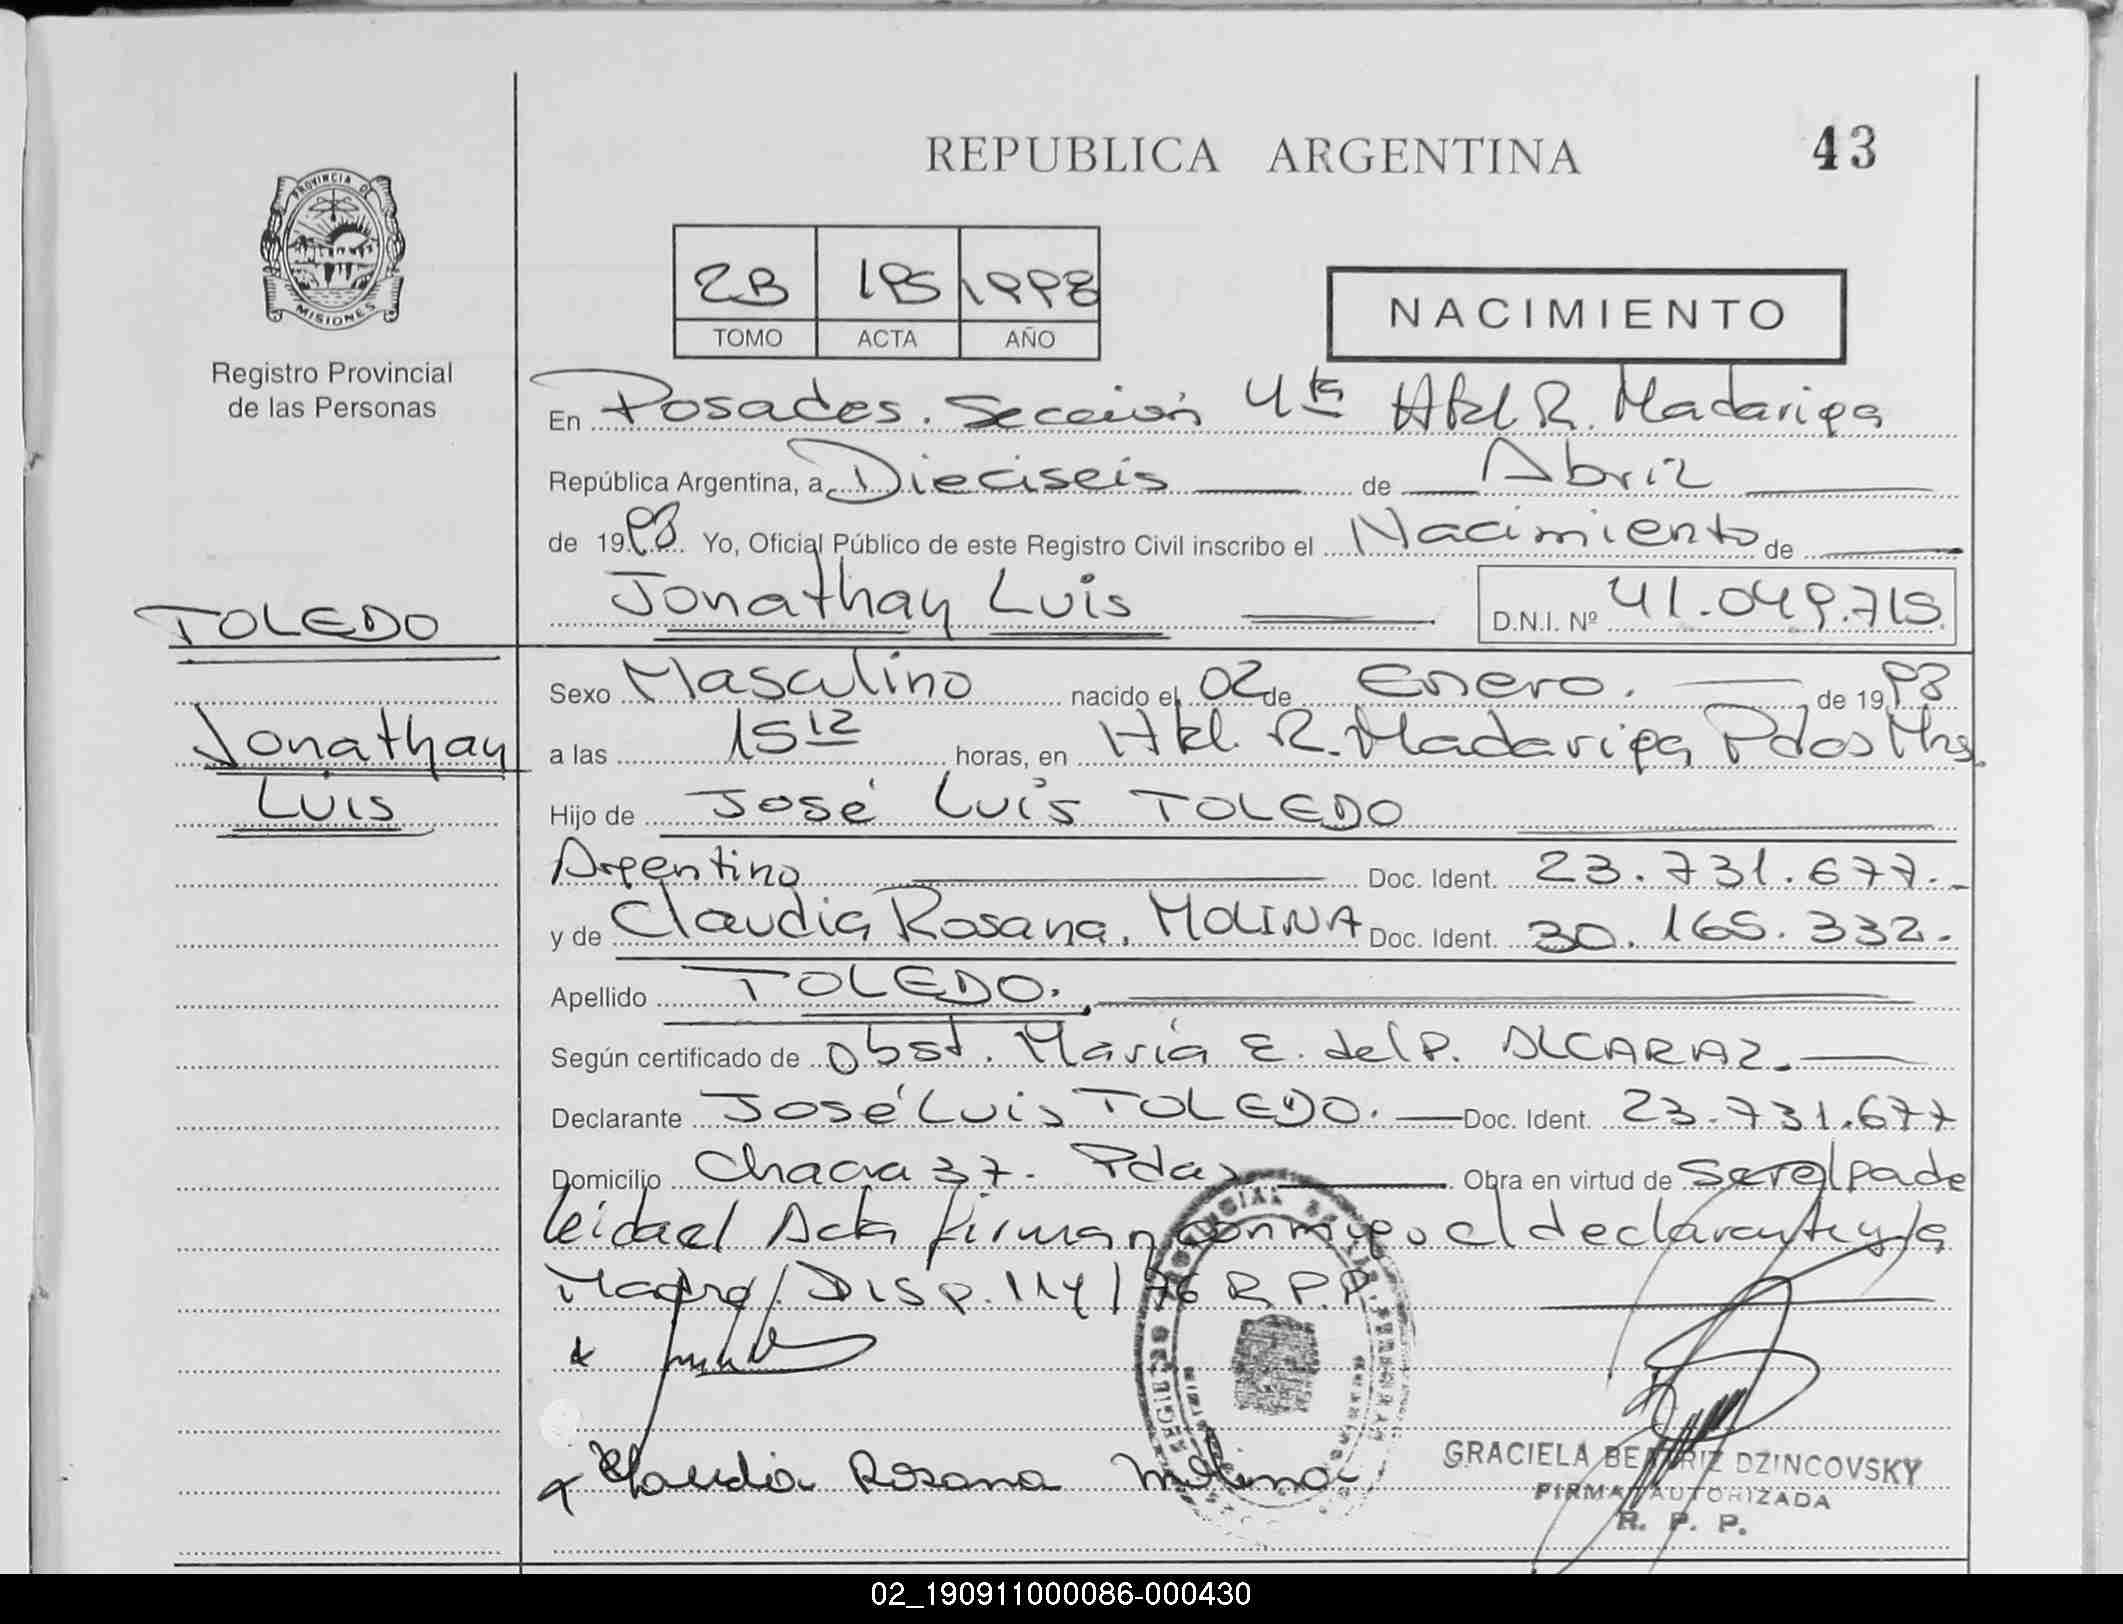 REPUBLICA ARGENTINA
43
PROVINCIA DE
MISIONES
Registro Provincial
de las Personas
2B 195 1998
TOMO ACTA AÑO
NACIMIENTO
En Posadas. Sección 4ta Hptal R. Madariaga
República Argentina, a Dieciseis de Abril
de 1998 Yo, Oficial Público de este Registro Civil inscribo el Nacimiento de
Jonathan Luis D.N.I. Nº 41.049.715
TOLEDO
Jonathan
Luis
Sexo Masculino nacido el 02 de Enero. de 1998
a las 15 12 horas, en Hptal. R. Madariaga Pdas Mns.
Hijo de José Luis TOLEDO
Argentino Doc. Ident. 23.731.677.
y de Claudia Rosana. MOLINA Doc. Ident. 30.165.332.
Apellido TOLEDO.
Según certificado de Obst. María E. del P. ALCARAZ.
Declarante José Luis TOLEDO. Doc. Ident. 23.731.677
Domicilio Chacra 37. Pdas Obra en virtud de ser el padre
leida el Acta firman conmigo el declarante y la
Madre/. DISP. 114/76 R.P.P.
Claudia Rosana Molina
GRACIELA BEATRIZ DZINCOVSKY
FIRMA AUTORIZADA
R. P. P.
02_190911000086-000430